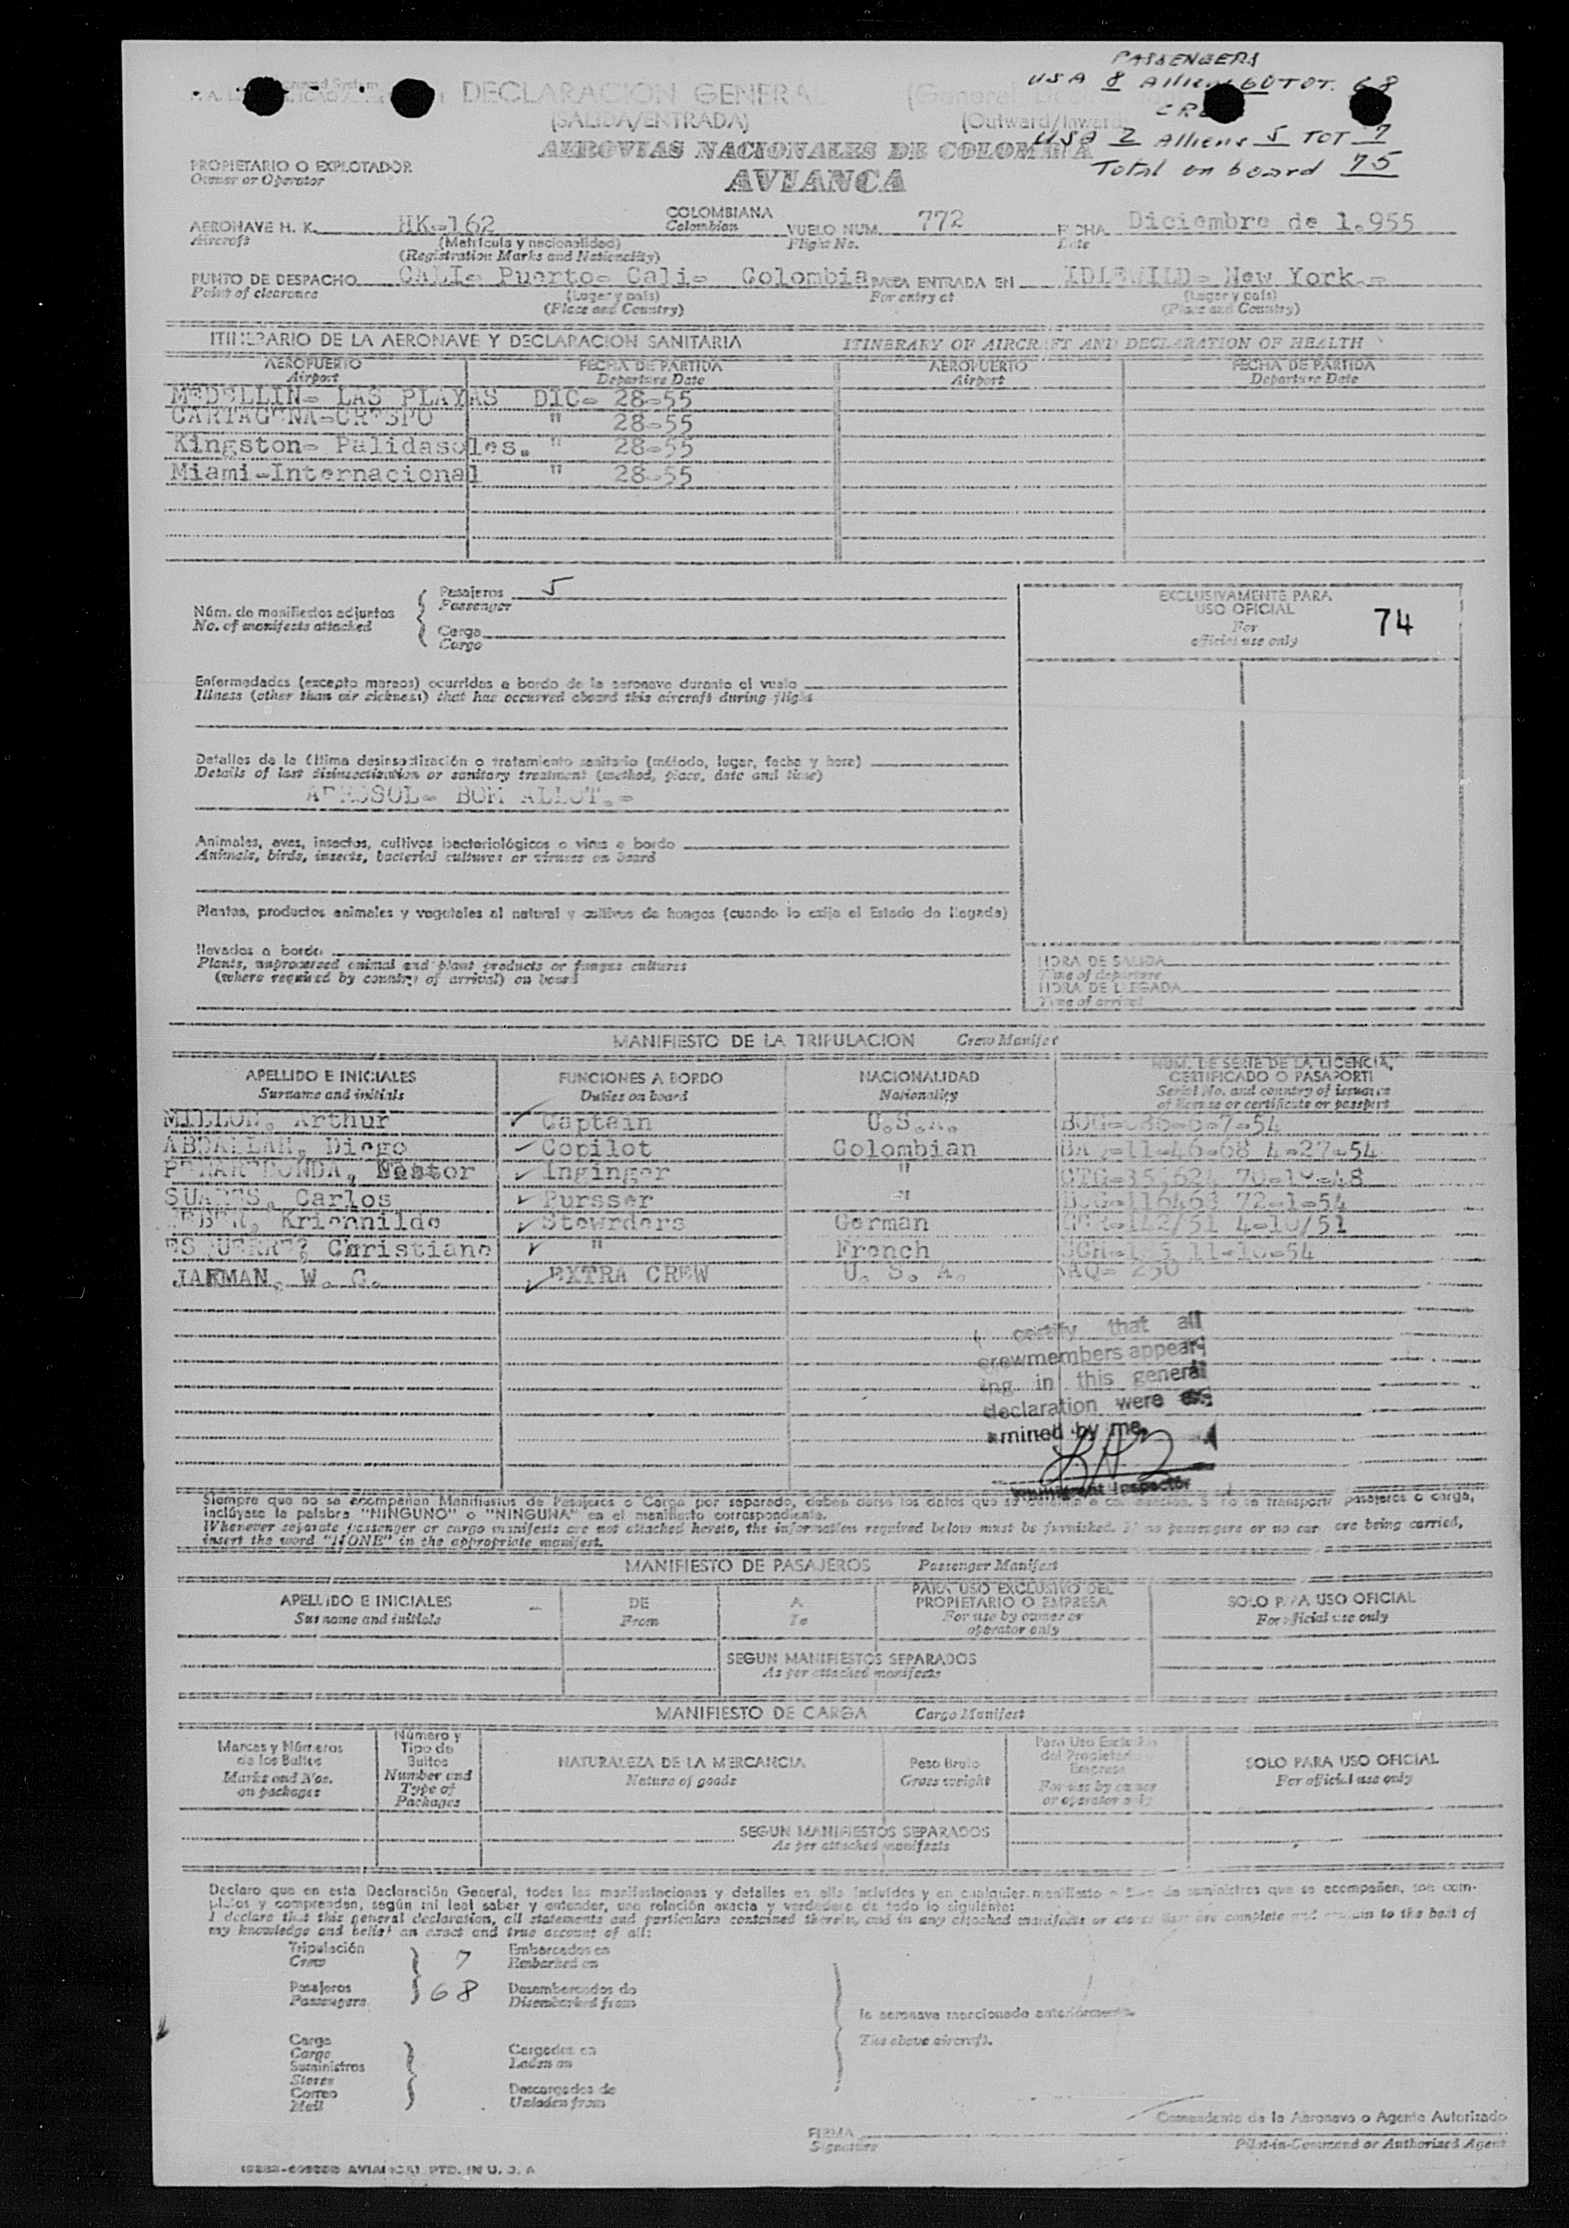 PASSENGERS
USA 8 Alliens 60 TOT. 68
DECLARACION GENERAL (General
(SALIDA/ENTRADA) (Outward/Inward)
USA 2 Alliens 5 TOT 7
AEROVIAS NACIONALES DE COLOMBIA
Total on board 75
PROPIETARIO O EXPLOTADOR
Owner or Operator
AVIANCA
AERONAVE H. K. HK-162 COLOMBIANA VUELO NUM. 772 FECHA Diciembre de 1.955
Aircraft (Matrícula y nacionalidad) Colombian Flight No. Date
(Registration Marks and Nationality)
PUNTO DE DESPACHO CALI- Puerto- Cali- Colombia PARA ENTRADA EN IDLEWILD- New York.-
Point of clearance (Lugar y país) For entry at (Lugar y país)
(Place and Country) (Place and Country)
ITINERARIO DE LA AERONAVE Y DECLARACION SANITARIA ITINERARY OF AIRCRAFT AND DECLARATION OF HEALTH
AEROPUERTO FECHA DE PARTIDA AEROPUERTO FECHA DE PARTIDA
Airport Departure Date Airport Departure Date
MEDELLIN- LAS PLAYAS DIC- 28-55
CARTAGENA-CRESPO " 28-55
Kingston- Palidasoles. " 28-55
Miami-Internacional " 28-55
Núm. de manifiestos adjuntos
No. of manifests attached
Pasajeros 5
Passenger
Carga
Cargo
EXCLUSIVAMENTE PARA
USO OFICIAL
For
official use only
74
Enfermedades (excepto mareos) ocurridas a bordo de la aeronave durante el vuelo
Illness (other than air sickness) that has occurred aboard this aircraft during flight
Detalles de la última desinsectización o tratamiento sanitario (método, lugar, fecha y hora)
Details of last disinsectization or sanitary treatment (method, place, date and time)
AEROSOL- BOM ALLOT.-
Animales, aves, insectos, cultivos bacteriológicos o virus a bordo
Animals, birds, insects, bacterial cultures or viruses on board
Plantas, productos animales y vegetales al natural y cultivos de hongos (cuando lo exija el Estado de llegada)
llevados a bordo
Plants, unprocessed animal and plant products or fungus cultures
(where required by country of arrival) on board
HORA DE SALIDA
Time of departure
HORA DE LLEGADA
Time of arrival
MANIFIESTO DE LA TRIPULACION Crew Manifest
APELLIDO E INICIALES FUNCIONES A BORDO NACIONALIDAD NUM. DE SERIE DE LA LICENCIA, CERTIFICADO O PASAPORTE
Surname and initials Duties on board Nationality Serial No. and country of issuance of license or certificate or passport
Arthur Captain U.S.A.
ABDALLAH, Diego Copilot Colombian 4-27-54
Nestor Inginger "
SUARES, Carlos Pursser " 72-1-54
Kriennilde Stewrders German 4-10/51
Christiane " French 11-10-54
JARMAN, W. C. EXTRA CREW U. S. A. AQ- 230
I certify that all
crewmembers appear-
ing in this general
declaration were ex-
amined by me.
Immigrant Inspector
Siempre que no se acompañen Manifiestos de Pasajeros o Carga por separado, deben darse los datos que se detallan a continuación. Si no se transporta pasajeros o carga,
inclúyase la palabra "NINGUNO" o "NINGUNA" en el manifiesto correspondiente.
Whenever separate passenger or cargo manifests are not attached hereto, the information required below must be furnished. If no passengers or no cargo are being carried,
insert the word "NONE" in the appropriate manifest.
MANIFIESTO DE PASAJEROS Passenger Manifest
APELLIDO E INICIALES DE A PARA USO EXCLUSIVO DEL PROPIETARIO O EMPRESA SOLO PARA USO OFICIAL
Surname and initials From To For use by owner or operator only For official use only
SEGUN MANIFIESTOS SEPARADOS
As per attached manifests
MANIFIESTO DE CARGA Cargo Manifest
Marcas y Números de los Bultos Número y Tipo de Bultos NATURALEZA DE LA MERCANCIA Peso Bruto Para Uso Exclusivo del Propietario o Empresa SOLO PARA USO OFICIAL
Marks and Nos. on packages Number and Type of Packages Nature of goods Gross weight For use by owner or operator only For official use only
SEGUN MANIFIESTOS SEPARADOS
As per attached manifests
Declaro que en esta Declaración General, todas las manifestaciones y detalles en ella incluídos y en cualquier manifiesto o lista de suministros que se acompañen, son com-
pletos y comprenden, según mi leal saber y entender, una relación exacta y verdadera de todo lo siguiente:
I declare that this general declaration, all statements and particulars contained therein, and in any attached manifests or stores list are complete and contain to the best of
my knowledge and belief an exact and true account of all:
Tripulación 7 Embarcados en
Crew Embarked on
Pasajeros 68 Desembarcados de
Passengers Disembarked from
la aeronave mencionada anteriormente.
The above aircraft.
Carga
Cargo Cargados en
Suministros Laden on
Stores
Correo Descargados de
Mail Unladen from
Comandante de la Aeronave o Agente Autorizado
FIRMA
Signature Pilot-in-Command or Authorized Agent
AVIANCA) PTD. IN U. S. A